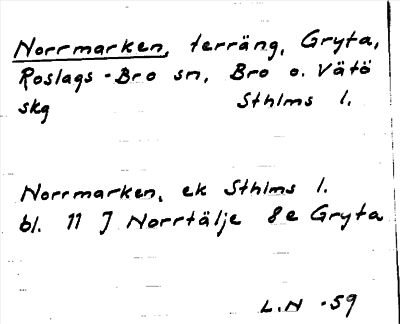 Norrmarken, terräng, Gryta,
Roslags-Bro sn, Bro o. Vätö
skg Sthlms l.
Norrmarken, ek Sthlms l.
bl. 11 J Norrtälje 8e Gryta
L.N -59